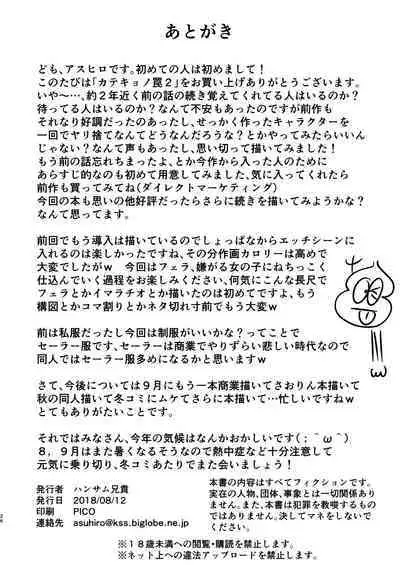 あとがき
ども、アスヒロです。初めての人は初めまして！
このたびは「カテキョノ罠２」をお買い上げありがとうございます。
いや～…、約２年近く前の話の続き覚えてくれてる人はいるのか？
待ってる人はいるのか？なんて不安もあったのですが前作も
それなり好調だったのあったし、せっかく作ったキャラクターを
一回でヤリ捨てなんてどうなんだろうな？とかやってみたらいいん
じゃない？なんて声もあったし、思い切って描いてみました！
もう前の話忘れちまったよ、とか今作から入った人のために
あらすじ的なのも初めて用意してみました、気に入ってくれたら
前作も買ってみてね(ダイレクトマーケティング)
今回の本も思いの他好評だったらさらに続きを描いてみようかな？
なんて思ってます。
前回でもう導入は描いているのでしょっぱなからエッチシーンに
入れるのは楽しかったですね、その分作画カロリーは高めで
大変でしたがｗ　今回はフェラ、嫌がる女の子にねちっこく
仕込んでいく過程をお楽しみください、何気にこんな長尺で
フェラとかイマラチオとか描いたのは初めてですよ、もう
構図とかコマ割りとかネタ切れ寸前でもう大変ｗ
前は私服だったし今回は制服がいいかな？ってことで
セーラー服です、セーラーは商業でやりずらい悲しい時代なので
同人ではセーラー服多めになるかと思いますｗ
さて、今後については９月にもう一本商業描いてさおりん本描いて
秋の同人描いて冬コミにムケてさらに本描いて…忙しいですねｗ
とてもありがたいことです。
それではみなさん、今年の気候はなんかおかしいです(；＾ω＾)
８，９月はまた暑くなるそうなので熱中症など十分注意して
元気に乗り切り、冬コミあたりでまた会いましょう！
発行者　ハンサム兄貴
発行日　2018/08/12
印刷　PICO
連絡先　asuhiro@kss.biglobe.ne.jp
本書の内容はすべてフィクションです。
実在の人物、団体、事象とは一切関係あり
ません。また、本書は犯罪を教唆するもの
ではありません。決してマネをしないで
ください。
※１８歳未満への閲覧・購読を禁止します。
※ネット上への違法アップロードを禁止します。